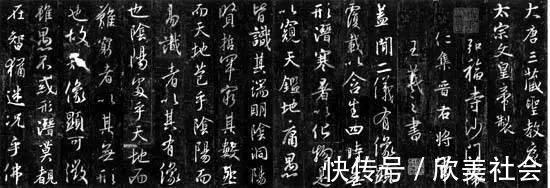 大唐三藏聖教序
太宗文皇帝製
弘福寺沙門
仁集晉右將軍
王羲之書
蓋聞二儀有像顯
覆載以含生四時無
形潛寒暑以化物是
以窺天鑒地庸愚
皆識其端明陰洞陽
賢哲罕窮其數然
而天地苞乎陰陽而
易識者以其有像
也陰陽處乎天地而
難窮者以其無形
也故像顯可徵
雖愚不惑形潛莫覩
在智猶迷況乎佛
快传号／欣美社会